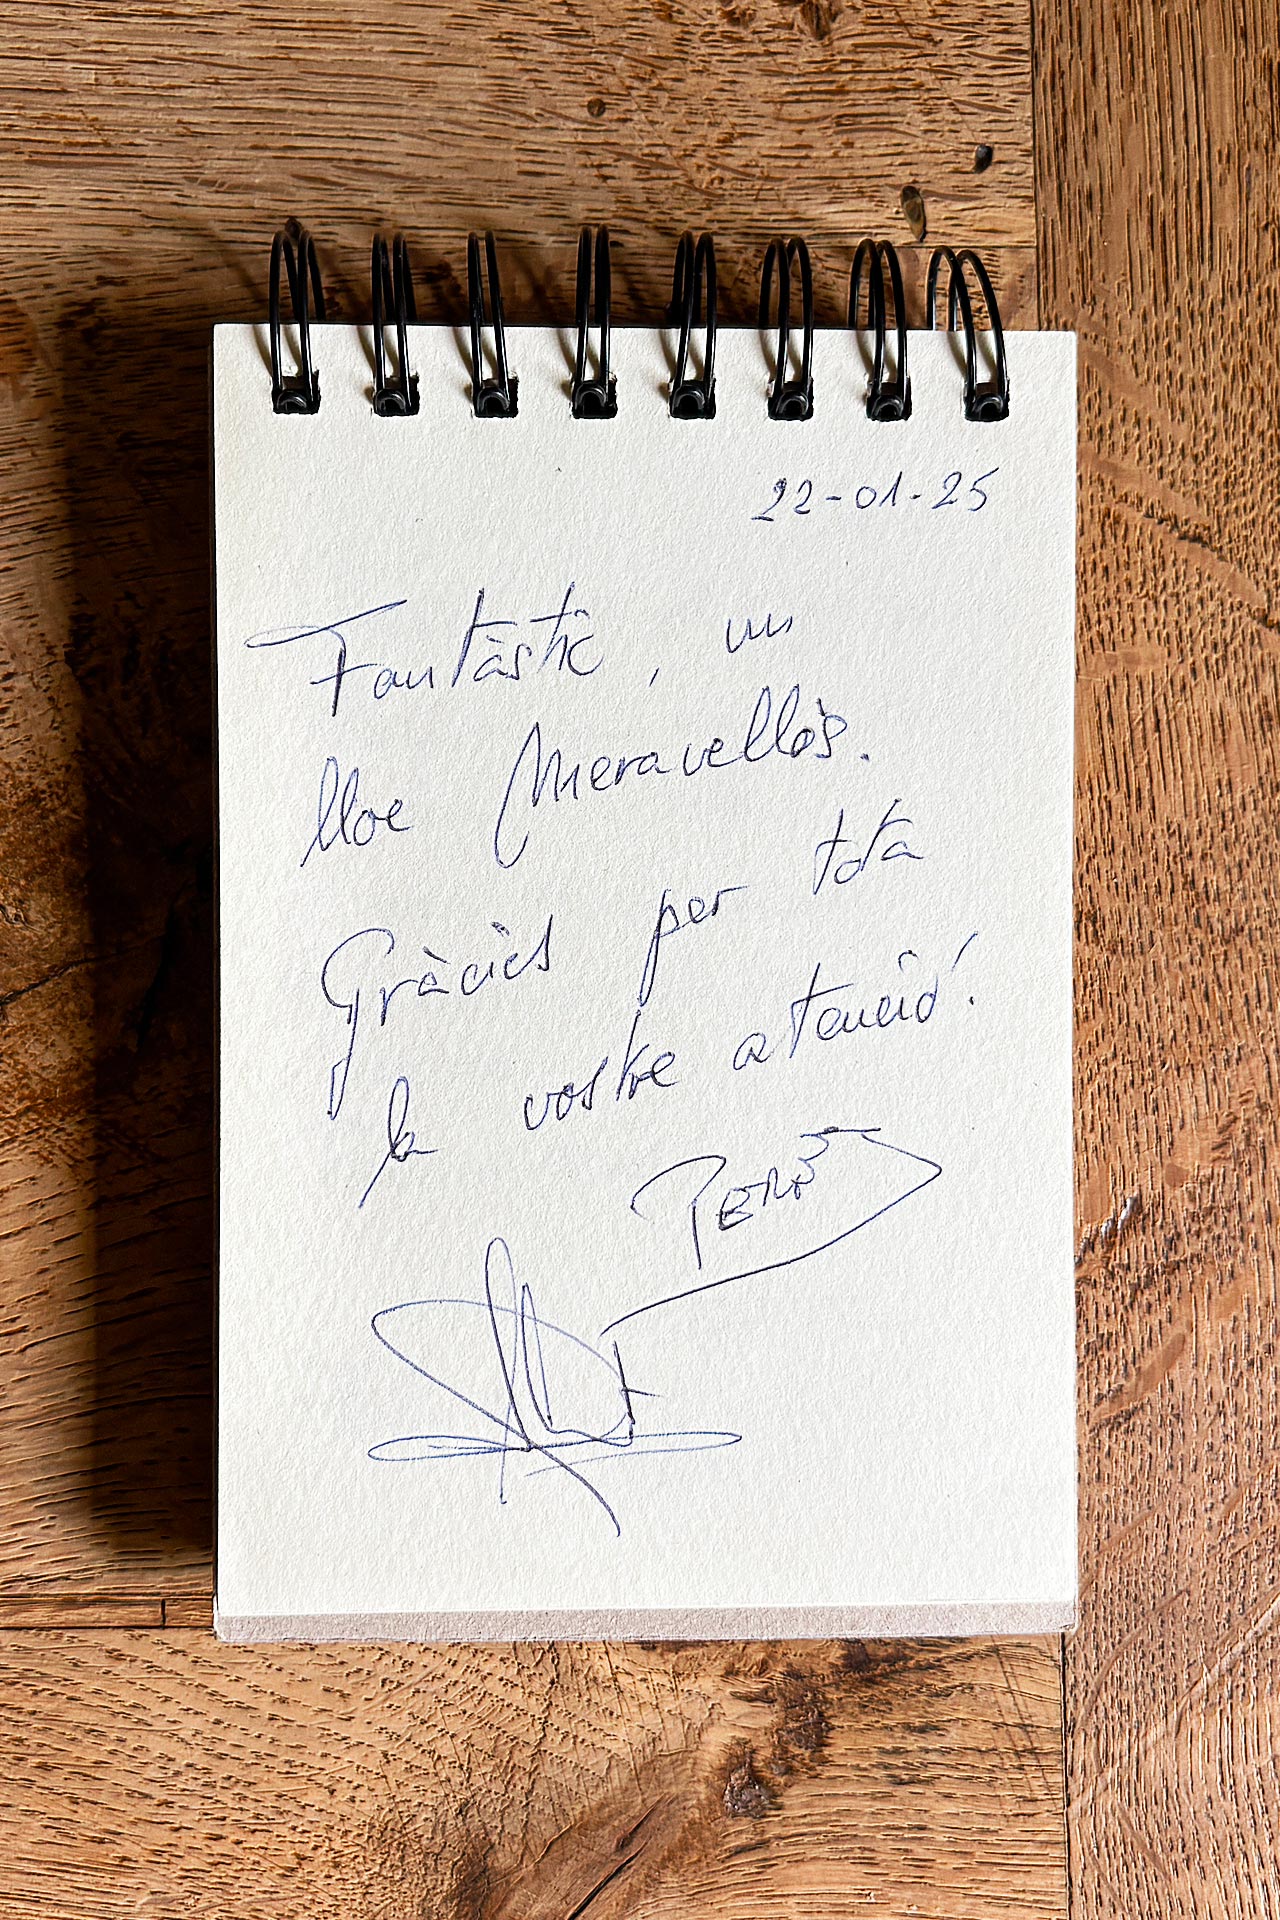 22-01-25
Fantàstic, un
lloc Meravellòs.
Gràcies per tota
la vostre atenció!